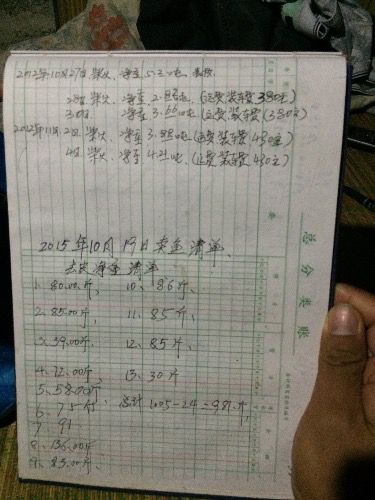 2012年10月27日柴火、净重5.3吨、
28日柴火、净重2.88吨、(运费装车费380元)
30日 净重3.66吨(运费、装车费(330元)
2012年11月2日柴火、净重3.88吨(运费装车费430元)
4日柴火、净重4.21吨、(运费装车费430元)
2015年10月19日卖鱼清单、
去皮净重清单
1、80.00斤、 10、86斤
2、85.00斤、 11、85斤、
3、59.00斤、 12、85斤、
4、72.00斤、 13、30斤
5、58.00斤
6、75斤、 总计1005-24=981斤
7、91
8、136.00斤
9、83.00斤、
总分类账